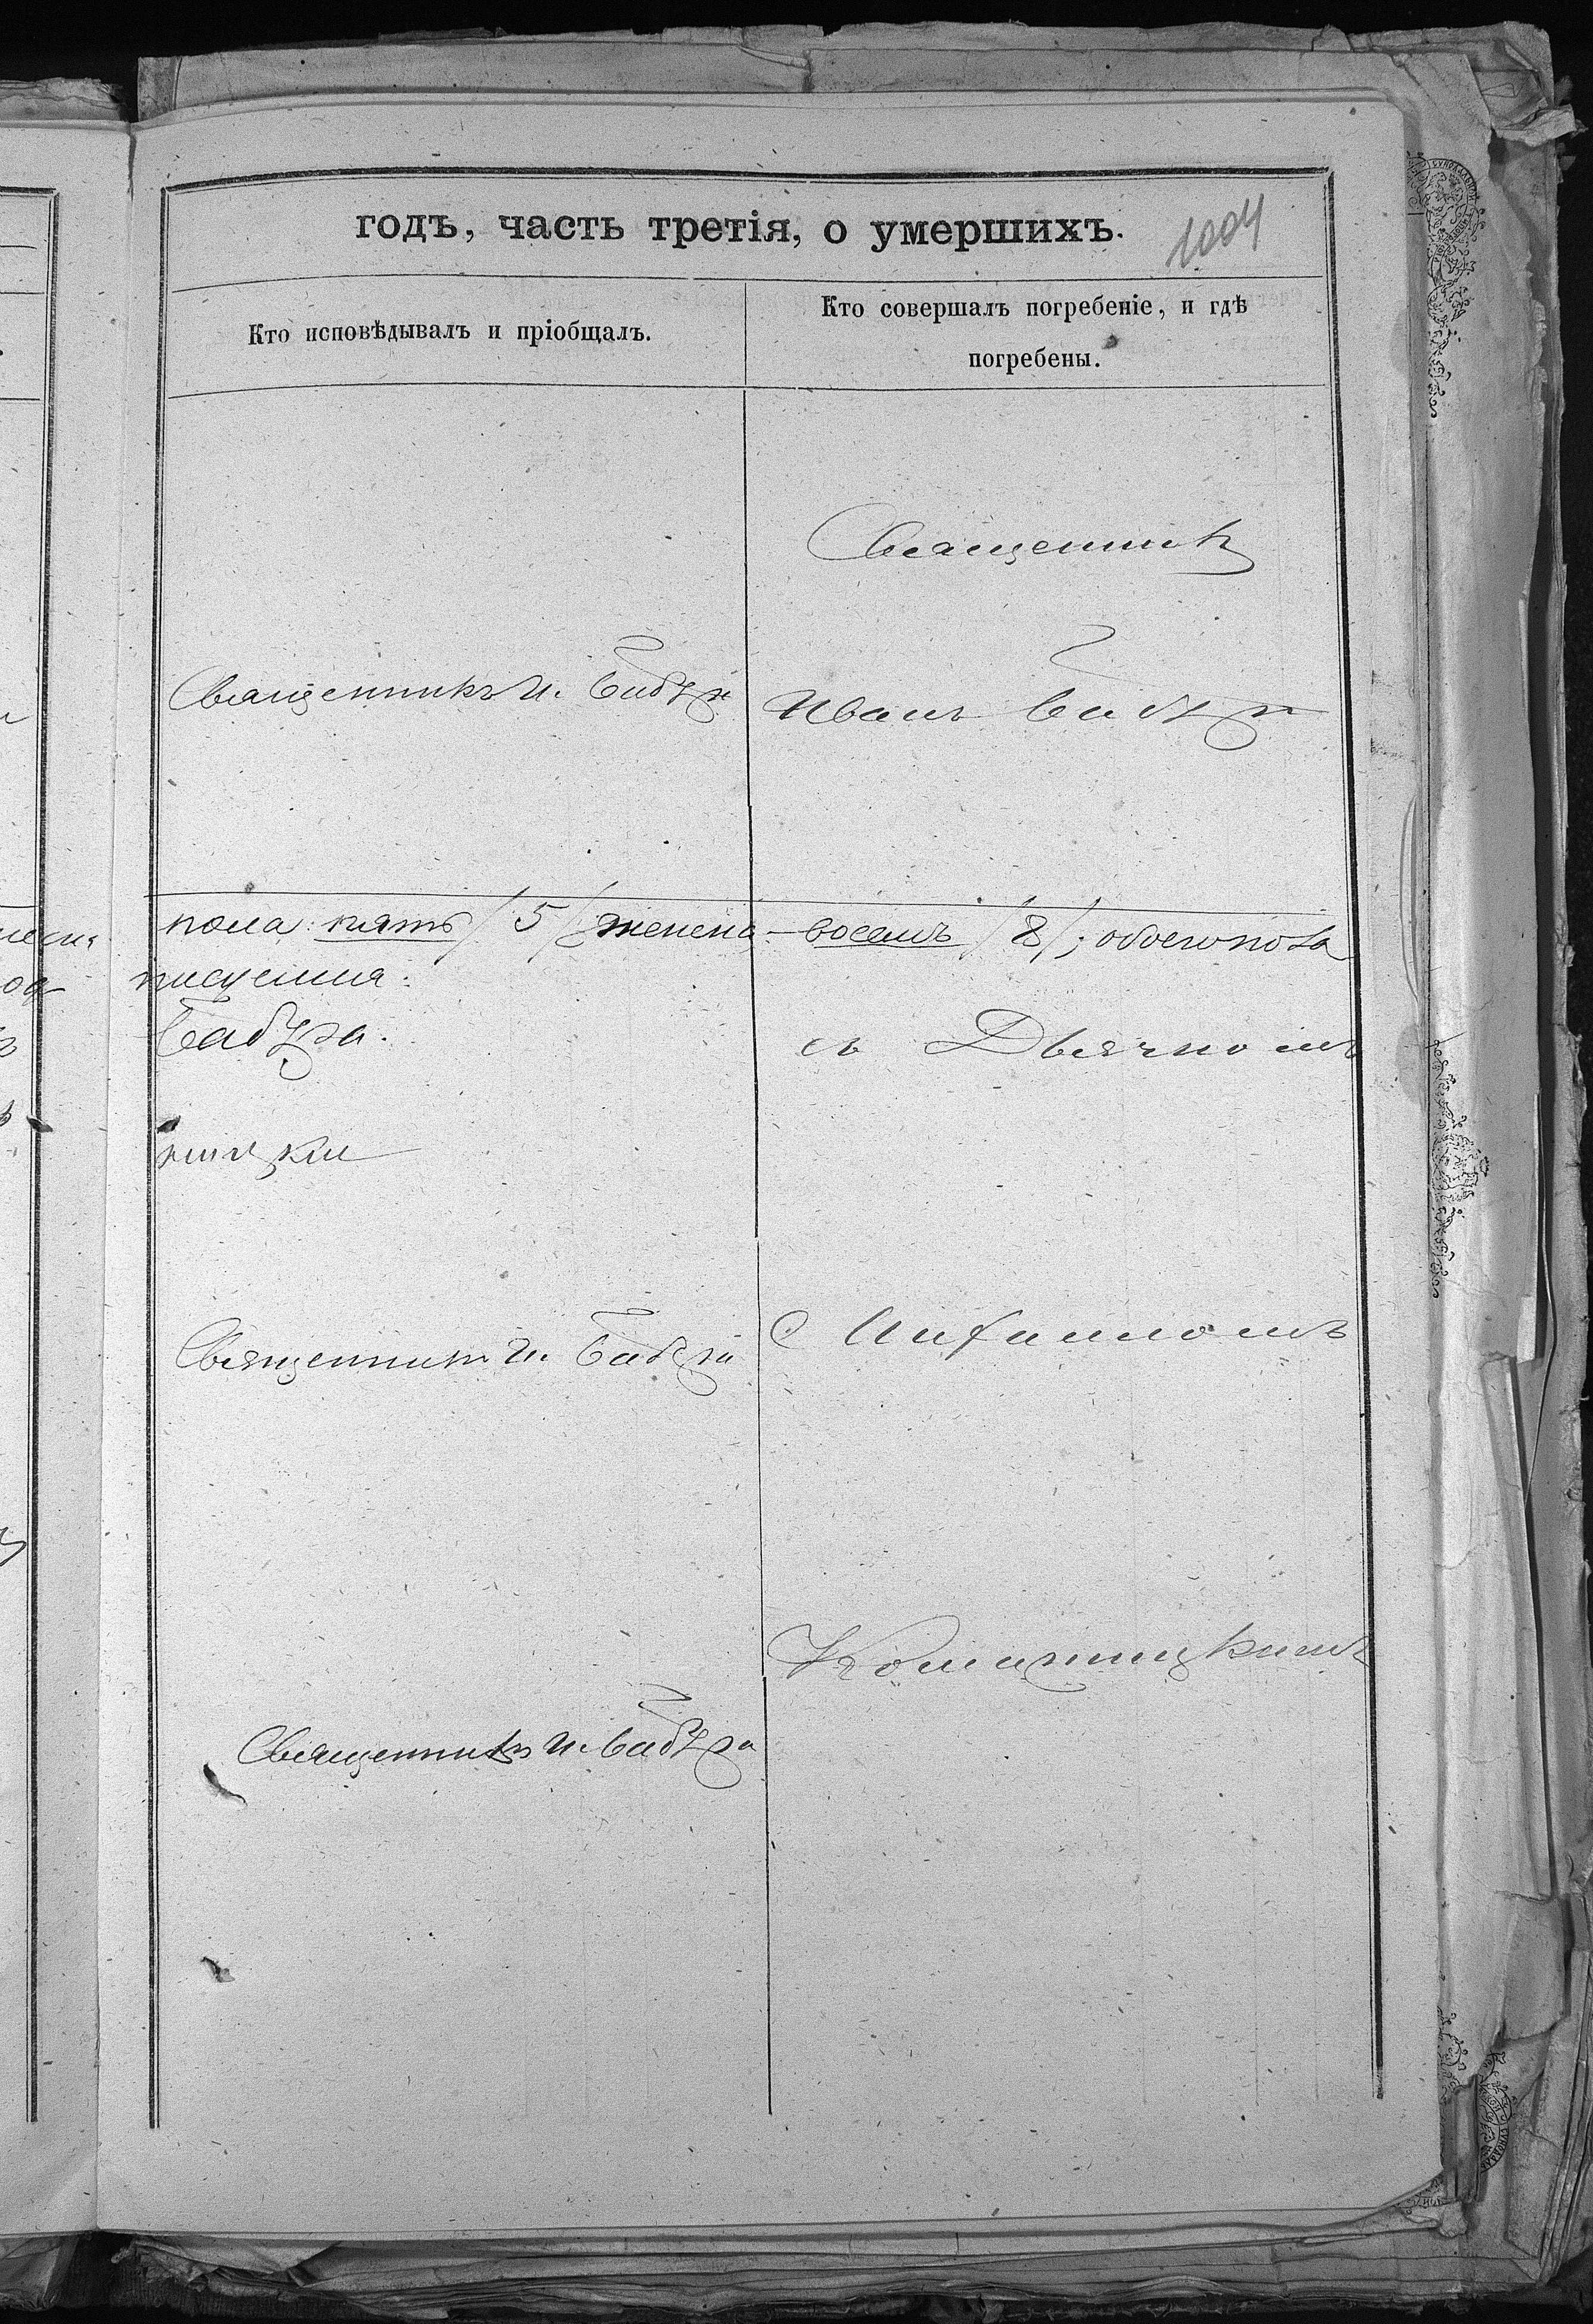 годъ, часть третія, о умершихъ.
1004
Кто исповѣдывалъ и пріобщалъ.
Кто совершалъ погребеніе, и гдѣ
погребены.
Священникъ
Священникъ И. Бабура
Иванъ Бабура
пола: пять /5/ женска – восемь /8/; обоего пола
Бабура.
съ Дьячкомъ
Священникъ И. Бабура
Священникъ И. Бабура